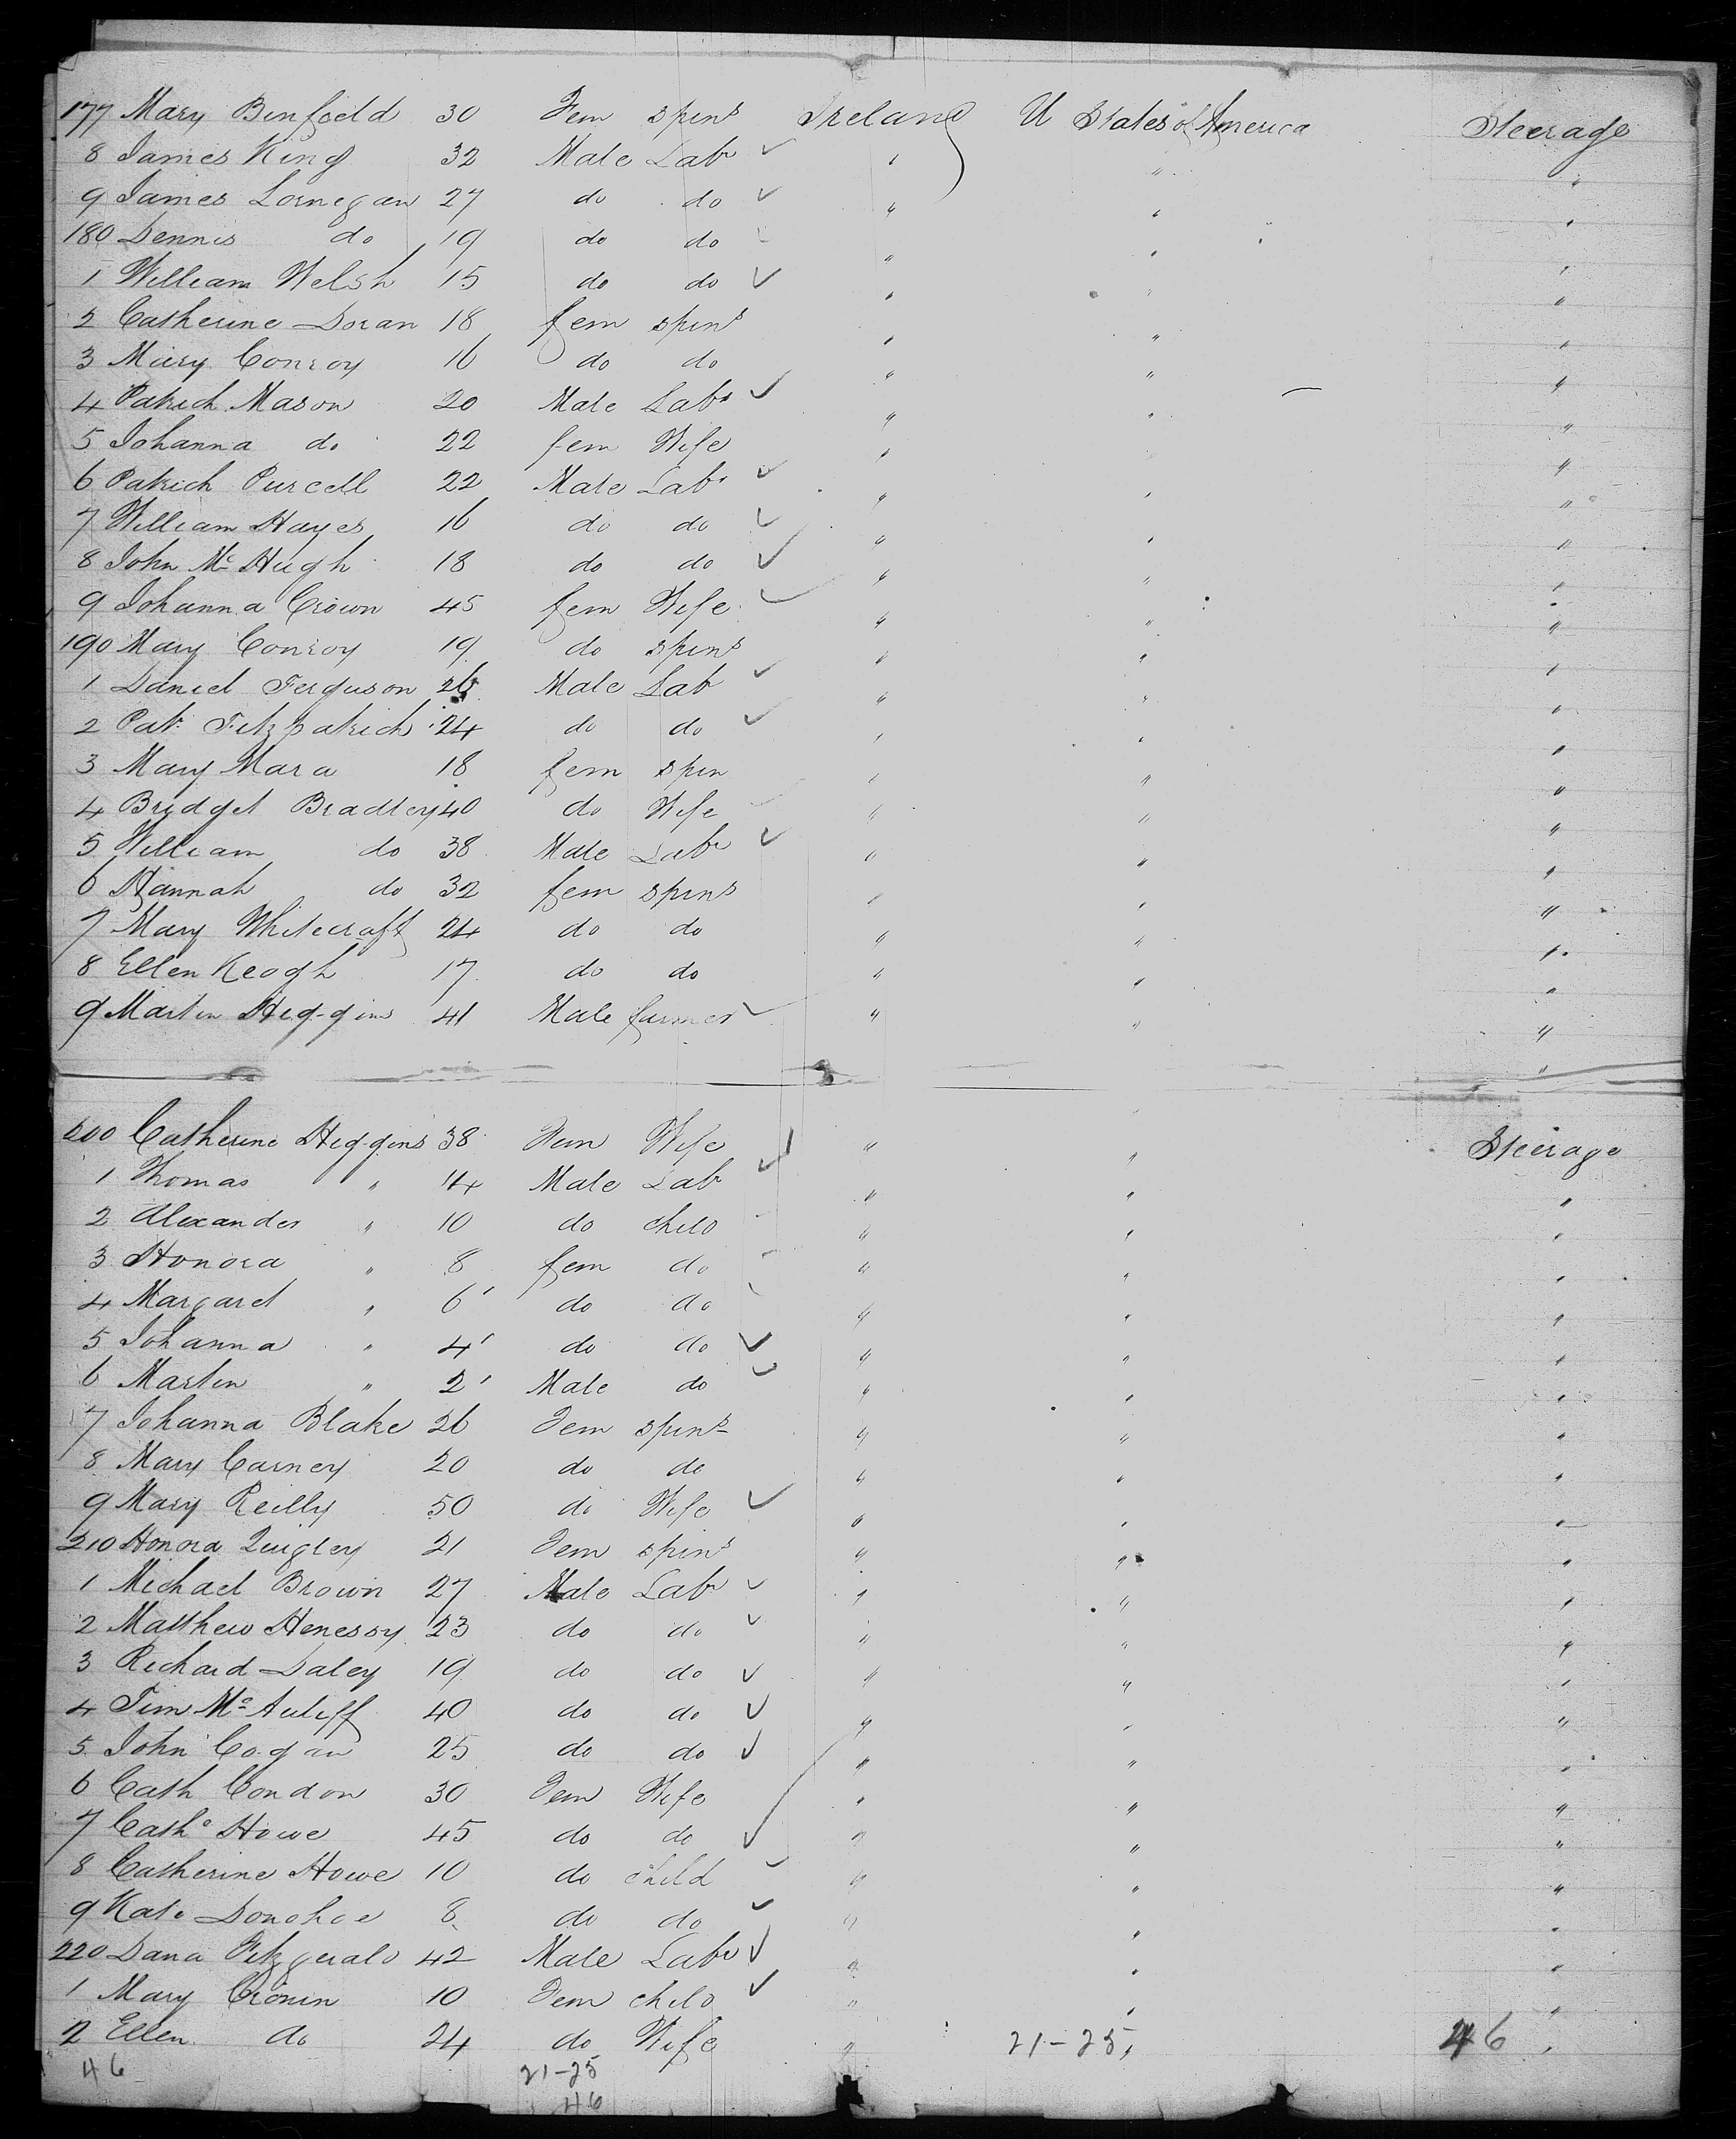 177 Mary Binfield 30 Fem spins Ireland U States of America Steerage
8 James King 32 Male Labr " " "
9 James Lornegan 27 do do " " "
180 Dennis do 19 do do " " "
1 William Welsh 15 do do " " "
2 Catherine Doran 18 fem spins " " "
3 Mary Conroy 16 do do " " "
4 Patrick Mason 20 Male Labr " " "
5 Johanna do 22 fem Wife " " "
6 Patrick Purcell 22 Male Labr " " "
7 William Hayes 16 do do " " "
8 John Mc Hugh 18 do do " " "
9 Johanna Crown 45 fem Wife " " "
190 Mary Conroy 19 do spins " " "
1 Daniel Ferguson 26 Male Lab " " "
2 Pat. Fitzpatrick 24 do do " " "
3 Mary Mara 18 fem spin " " "
4 Bridget Bradley 40 do Wife " " "
5 William do 38 Male Labr " " "
6 Hannah do 32 fem spins " " "
7 Mary Whitecraft 24 do do " " "
8 Ellen Keogh 17 do do " " "
9 Martin Higgins 41 Male farmer " " "
200 Catherine Higgins 38 Fem Wife " " Steerage
1 Thomas " 14 Male Lab " " "
2 Alexander " 10 do child " " "
3 Honora " 8 fem do " " "
4 Margaret " 6 do do " " "
5 Johanna " 4 do do " " "
6 Martin " 2 Male do " " "
7 Johanna Blake 26 Fem spins " " "
8 Mary Carney 20 do do " " "
9 Mary Reilly 50 do Wife " " "
210 Honora Quigley 21 Fem spins " " "
1 Michael Brown 27 Male Labr " " "
2 Matthew Henessy 23 do do " " "
3 Richard Daley 19 do do " " "
4 Tim Mc Auliff 40 do do " " "
5 John Cogan 25 do do " " "
6 Cath Condon 30 Fem Wife " " "
7 Cathe Howe 45 do do " " "
8 Catherine Howe 10 do child " " "
9 Kate Donohoe 8 do do " " "
220 Dana Fitzgerald 42 Male Labr " " "
1 Mary Cronin 10 Fem child " " "
2 Ellen do 24 do Wife " 21-25 46
46 21-25
46